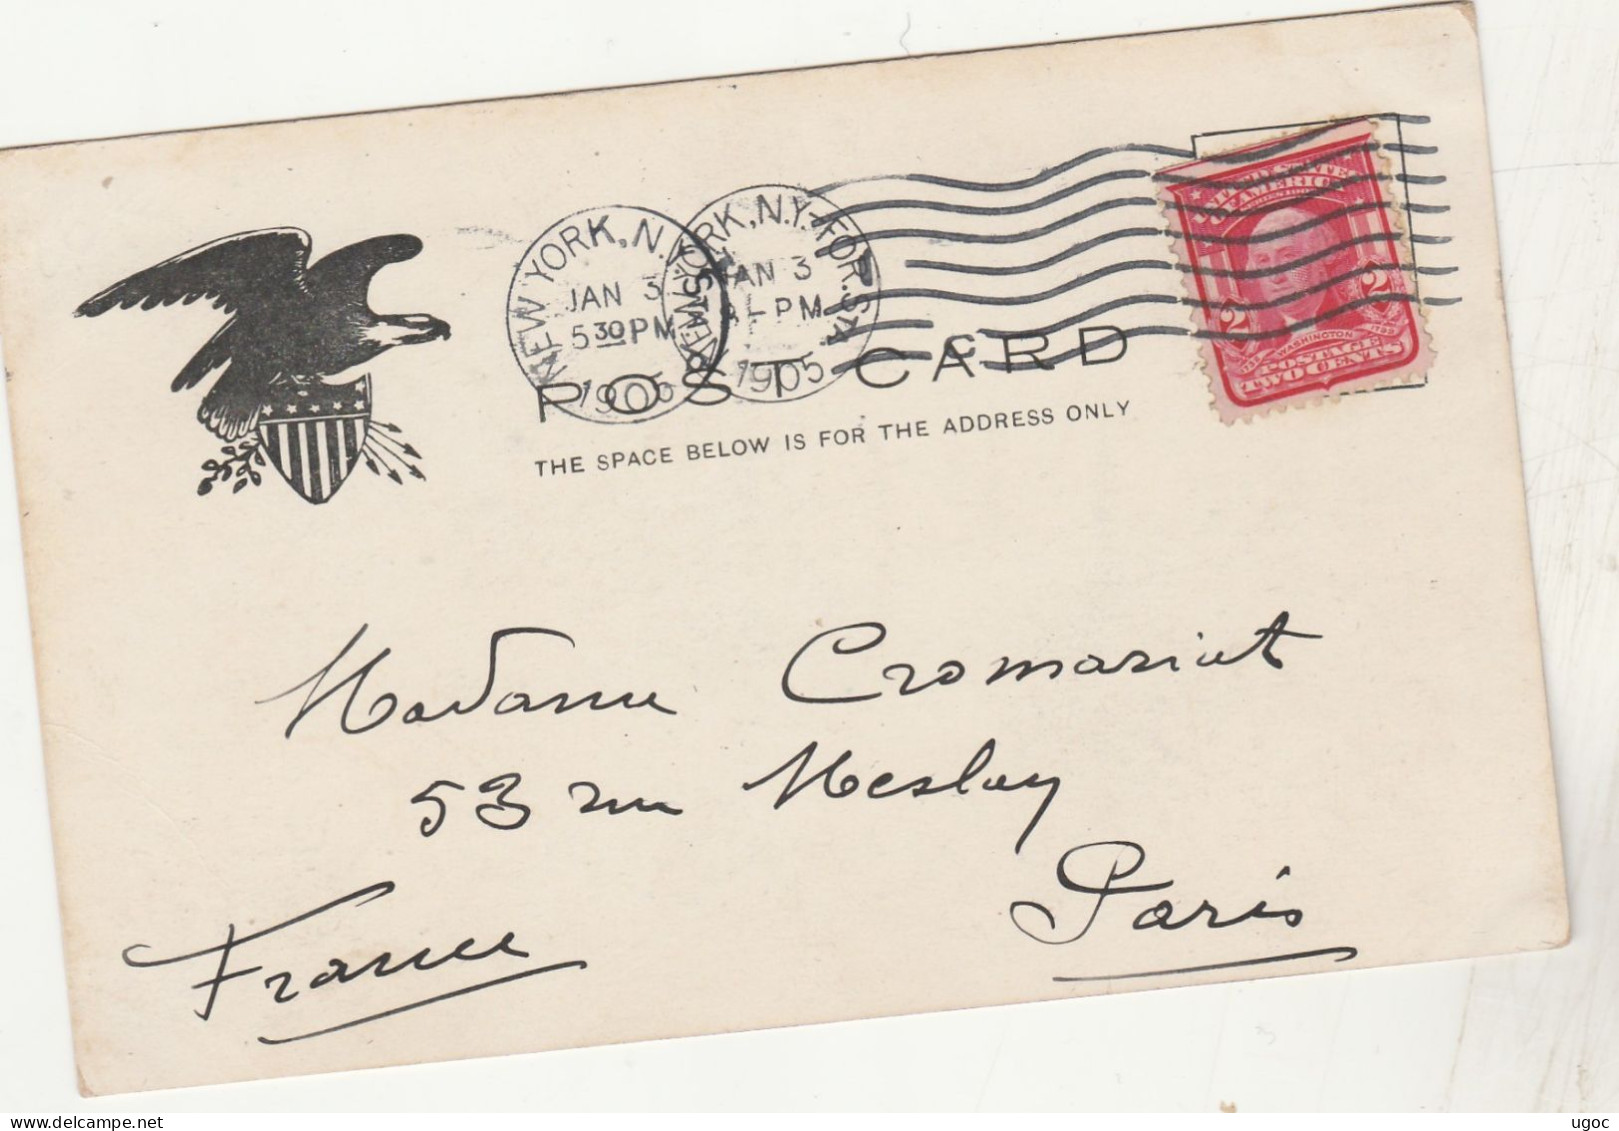 NEW YORK, N.Y.
JAN 3
5 30 PM
1905
YORK, N.Y. FOR. STA.
JAN 3
PM
1905
UNITED STATES
OF AMERICA
2 2
WASHINGTON
POSTAGE
TWO CENTS
POST CARD
THE SPACE BELOW IS FOR THE ADDRESS ONLY
Madame Cromariat
53 rue Meslay
Paris
France
delcampe.net
ugoc